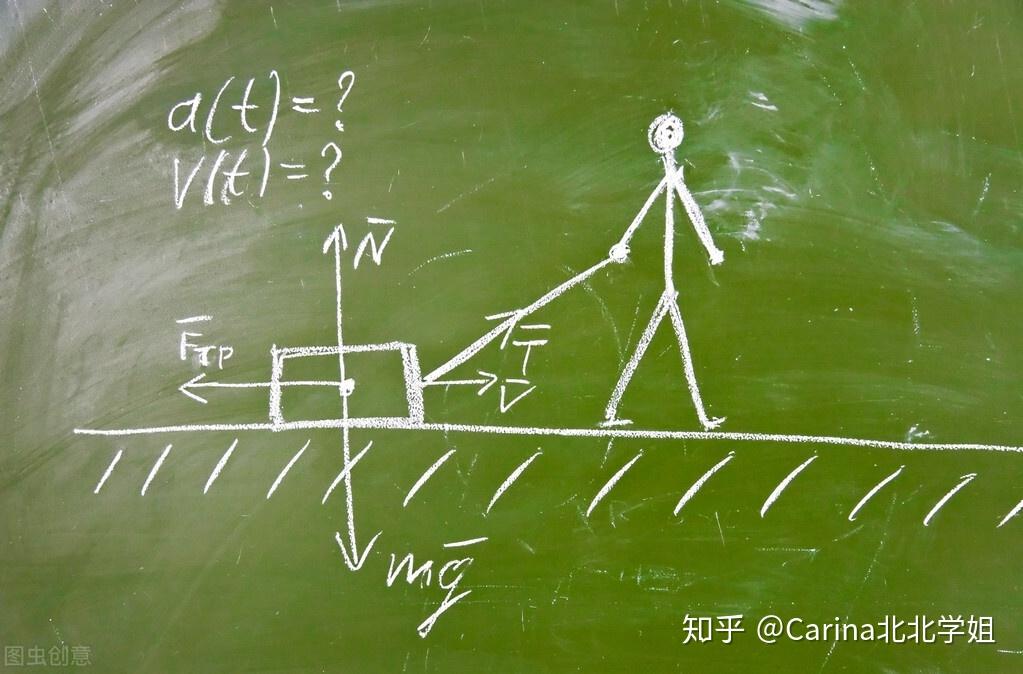 a(t)=?
v(t)=?
N̅
F̅тр
T̅
V̅
mg̅
知乎 @Carina北北学姐
图虫创意